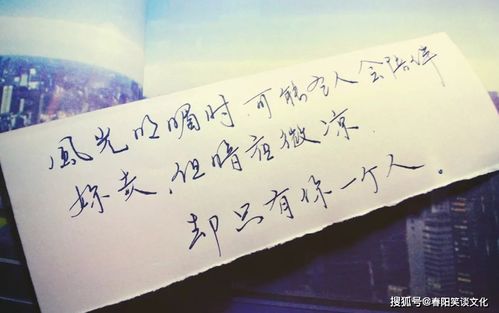 風光明媚时.可能有人会陪伴
妳走,但暗夜微凉.
却只有你一个人。
搜狐号@春阳笑谈文化